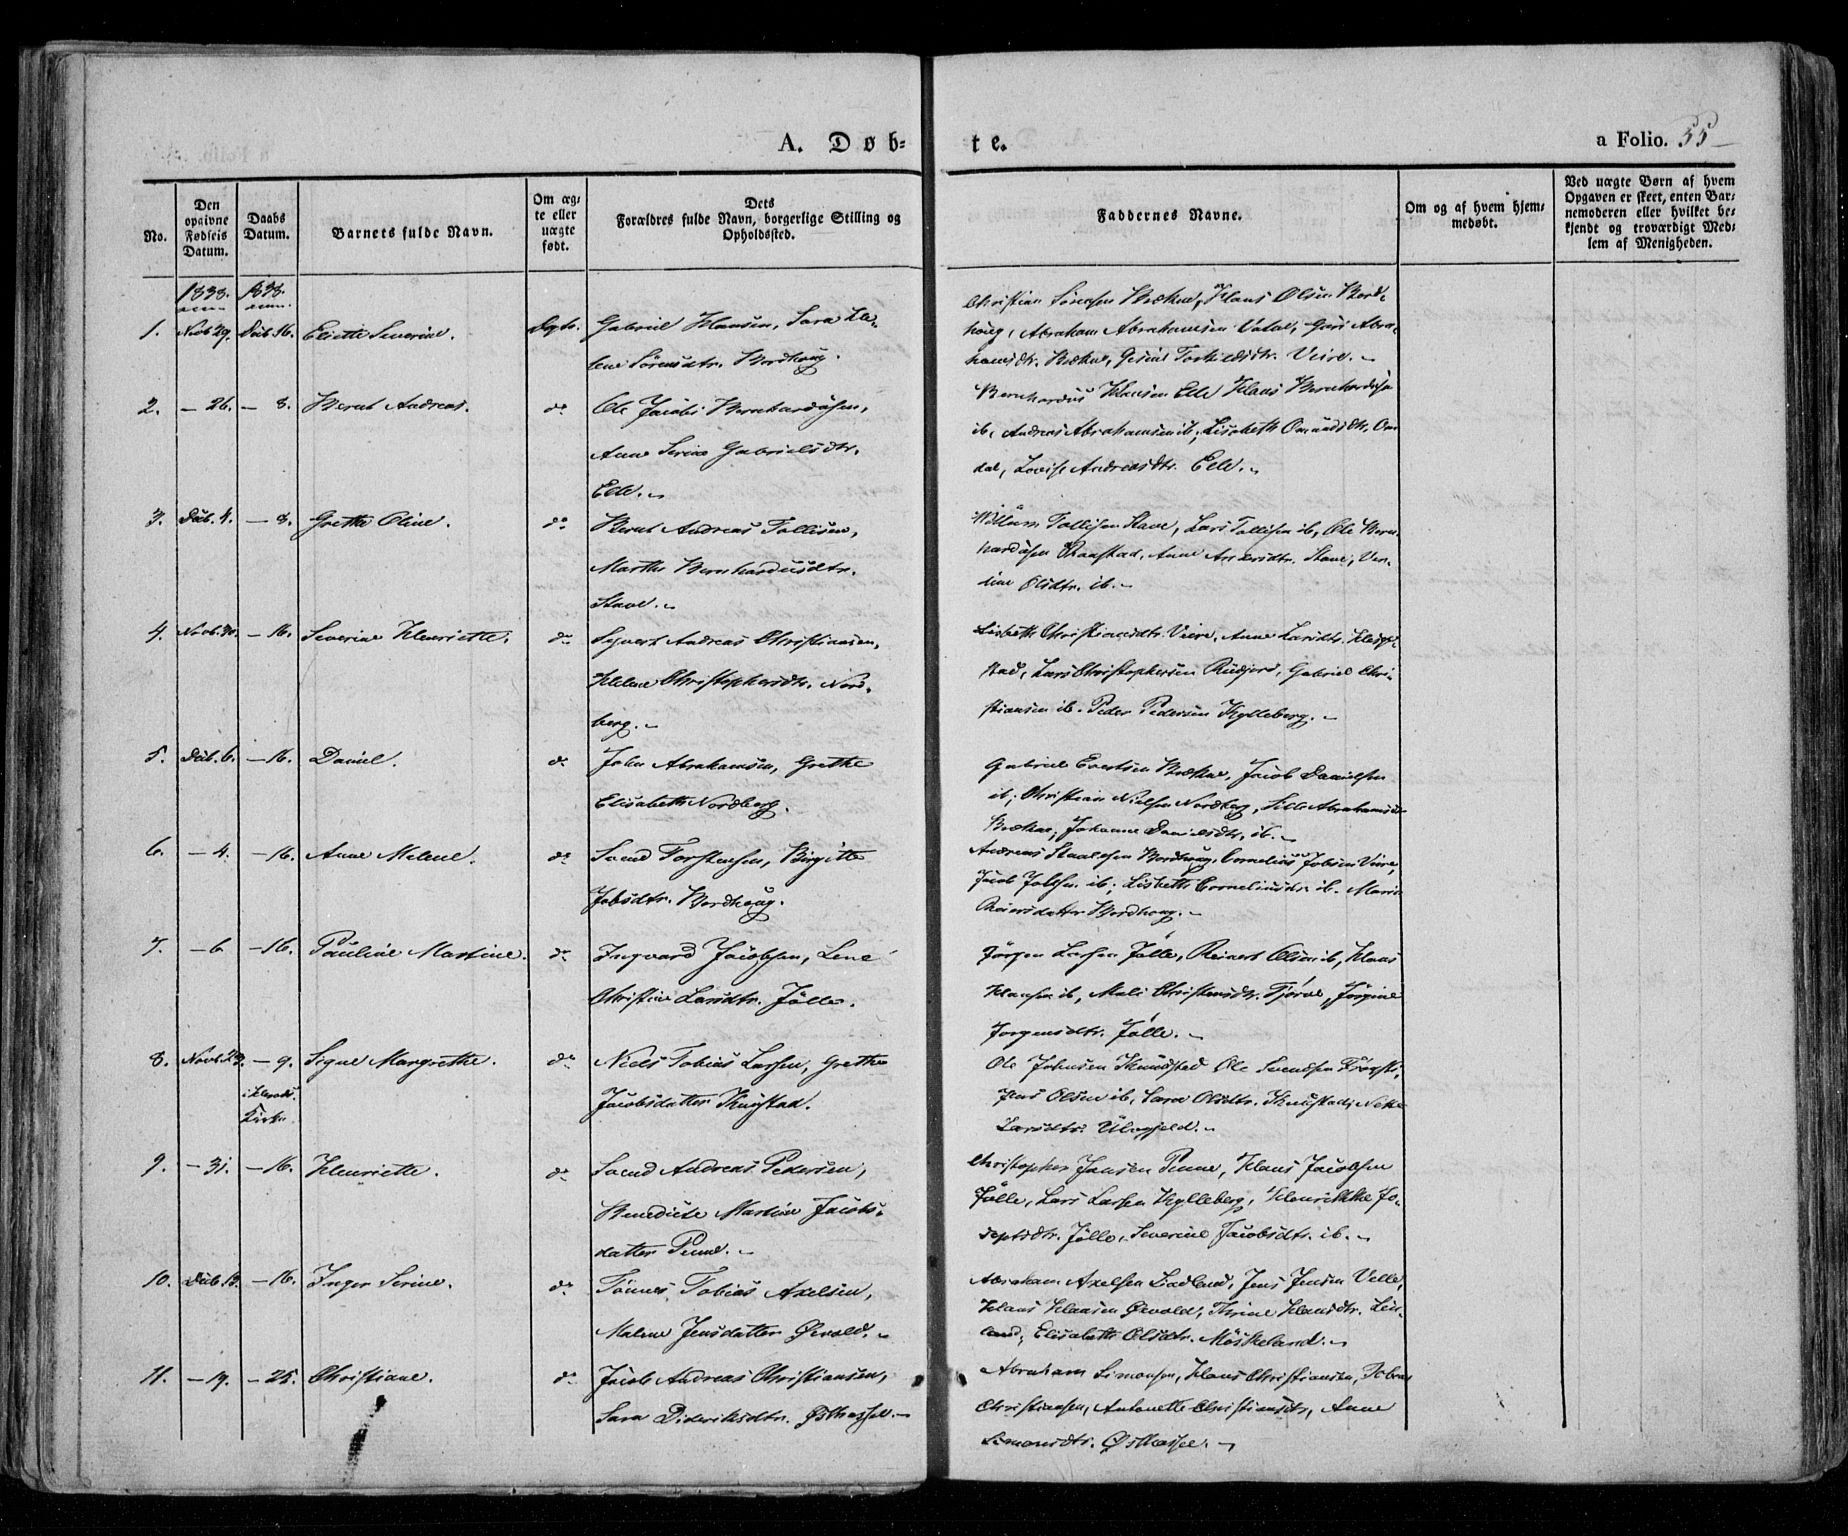 A. Døb-
te.
a Folio. 55
No.
Den opgivne Fødsels Datum.
Daabs Datum.
Barnets fulde Navn.
Om ægte eller uægte født.
Dets Forældres fulde Navn, borgerlige Stilling og Opholdssted.
Faddernes Navne.
Om og af hvem hjemmedøbt.
Ved uægte Børn af hvem Opgaven er skeet, enten Barnemoderen eller hvilket bekjendt og troværdigt Medlem af Menigheden.
1838. 1838.
1. Novb. 29. Decb. 16. Eliette Severine. Dgtr. Gabriel Hansen, Sara He-
lene Sörensdtr. Bordhoug.
Christian Sörensen Brekne, Hans Olsen Bord-
houg, Abraham Abrahamsen Vatne, Guri Abra-
hamsdtr. Brekne, Gesine Torkildsdtr. Veire.
2. — 26. — 8. Bernt Andreas. do Ole Jacob Bernhardusen,
Anne Serine Gabrielsdtr.
Eile.
Bernhardus Hansen Eile, Hans Bernhardusen
ib, Andreas Abrahamsen ib, Lisabeth Omundsdtr. Om-
dal, Lovise Andreasdtr. Eile.
3. Decb. 4. — 8. Grethe Oline. do Bernt Andreas Tollisen,
Marthe Bernhardusdtr.
Stave.
Willum Tollisen Stave, Lars Tollisen ib, Ole Bern-
hardusen Raastad, Anne Andersdtr. Stave,
Olsdtr. ib.
4. Novb. 30. — 16. Severine Henriette. do Syvert Andreas Christiansen,
Helene Christophersdtr. Nord-
berg.
Lisbeth Christiansdtr. Veire, Anne Larsdtr.
stad, Lars Christophersen Rudjord, Gabriel Chri-
stiansen ib. Peder Pedersen Hylleberg.
5. Decb. 6. — 16. Daniel. do John Abrahamsen, Grethe
Elisabeth Nordberg.
Gabriel Evertsen Brekne, Jacob Danielsen
ib, Christian Nielsen Nordberg, Sille Abrahamsd.
Brekne, Johanne Danielsdtr. ib.
6. — 4. — 16. Anne Malene. do Svend Torstensen, Birgitte
Jobsdtr. Bordhoug.
Andreas Staalesen Bordhoug, Cornelius Jobsen Veire,
Jacob Jobsen ib, Lisbeth Corneliusdtr. ib. Maria
Reiersdatter Bordhoug.
7. — 6 — 16. Pauline Martine. do Ingvard Jacobsen, Lene
Christine Larsdtr. Jölle.
Jörgen Larsen Jölle, Reinert Olsen ib, Hans
Hansen ib, Mali Christensdtr. Tjörve, Jörgine
Jorgensdtr. Jölle.
8. Novb. 23. — 9. Signe Margrethe. do Niels Tobias Larsen, Grethe
i Herads
Kirke
Jacobsdatter Skeistad.
Ole Johnsen Ole Svendsen
Jens Olsen ib, Sara Olsdtr.
Larsdtr. Ulvgjeld.
9. — 31. — 16. Henriette. do Svend Andreas Pedersen,
Benedicte Martine Jacobs-
datter Penne.
Christopher Jansen Penne, Hans Jacobsen
Jölle, Lars Larsen Hylleberg, Henrikke Jo-
sephsdtr. Jölle, Severine Jacobsdtr. ib.
10. Decb. 13. — 16. Inger Serine. do Tönnes Tobias Axelsen,
Malene Jensdatter Øivold.
Abraham Axelsen Ladland, Jens Jensen Velle,
Hans Hansen Øivold, Thrine Hansdtr. Lad-
land, Elisabeth Olsdtr. Möskeland.
11. — 19. — 25. Christiane. do Jacob Andreas Christiansen,
Sara Dideriksdtr. Østhassel.
Abraham Simonsen, Hans Christiansen, Tobias
Christiansen, Antonette Christiansdtr, Anne
Simonsdtr. Østhassel.